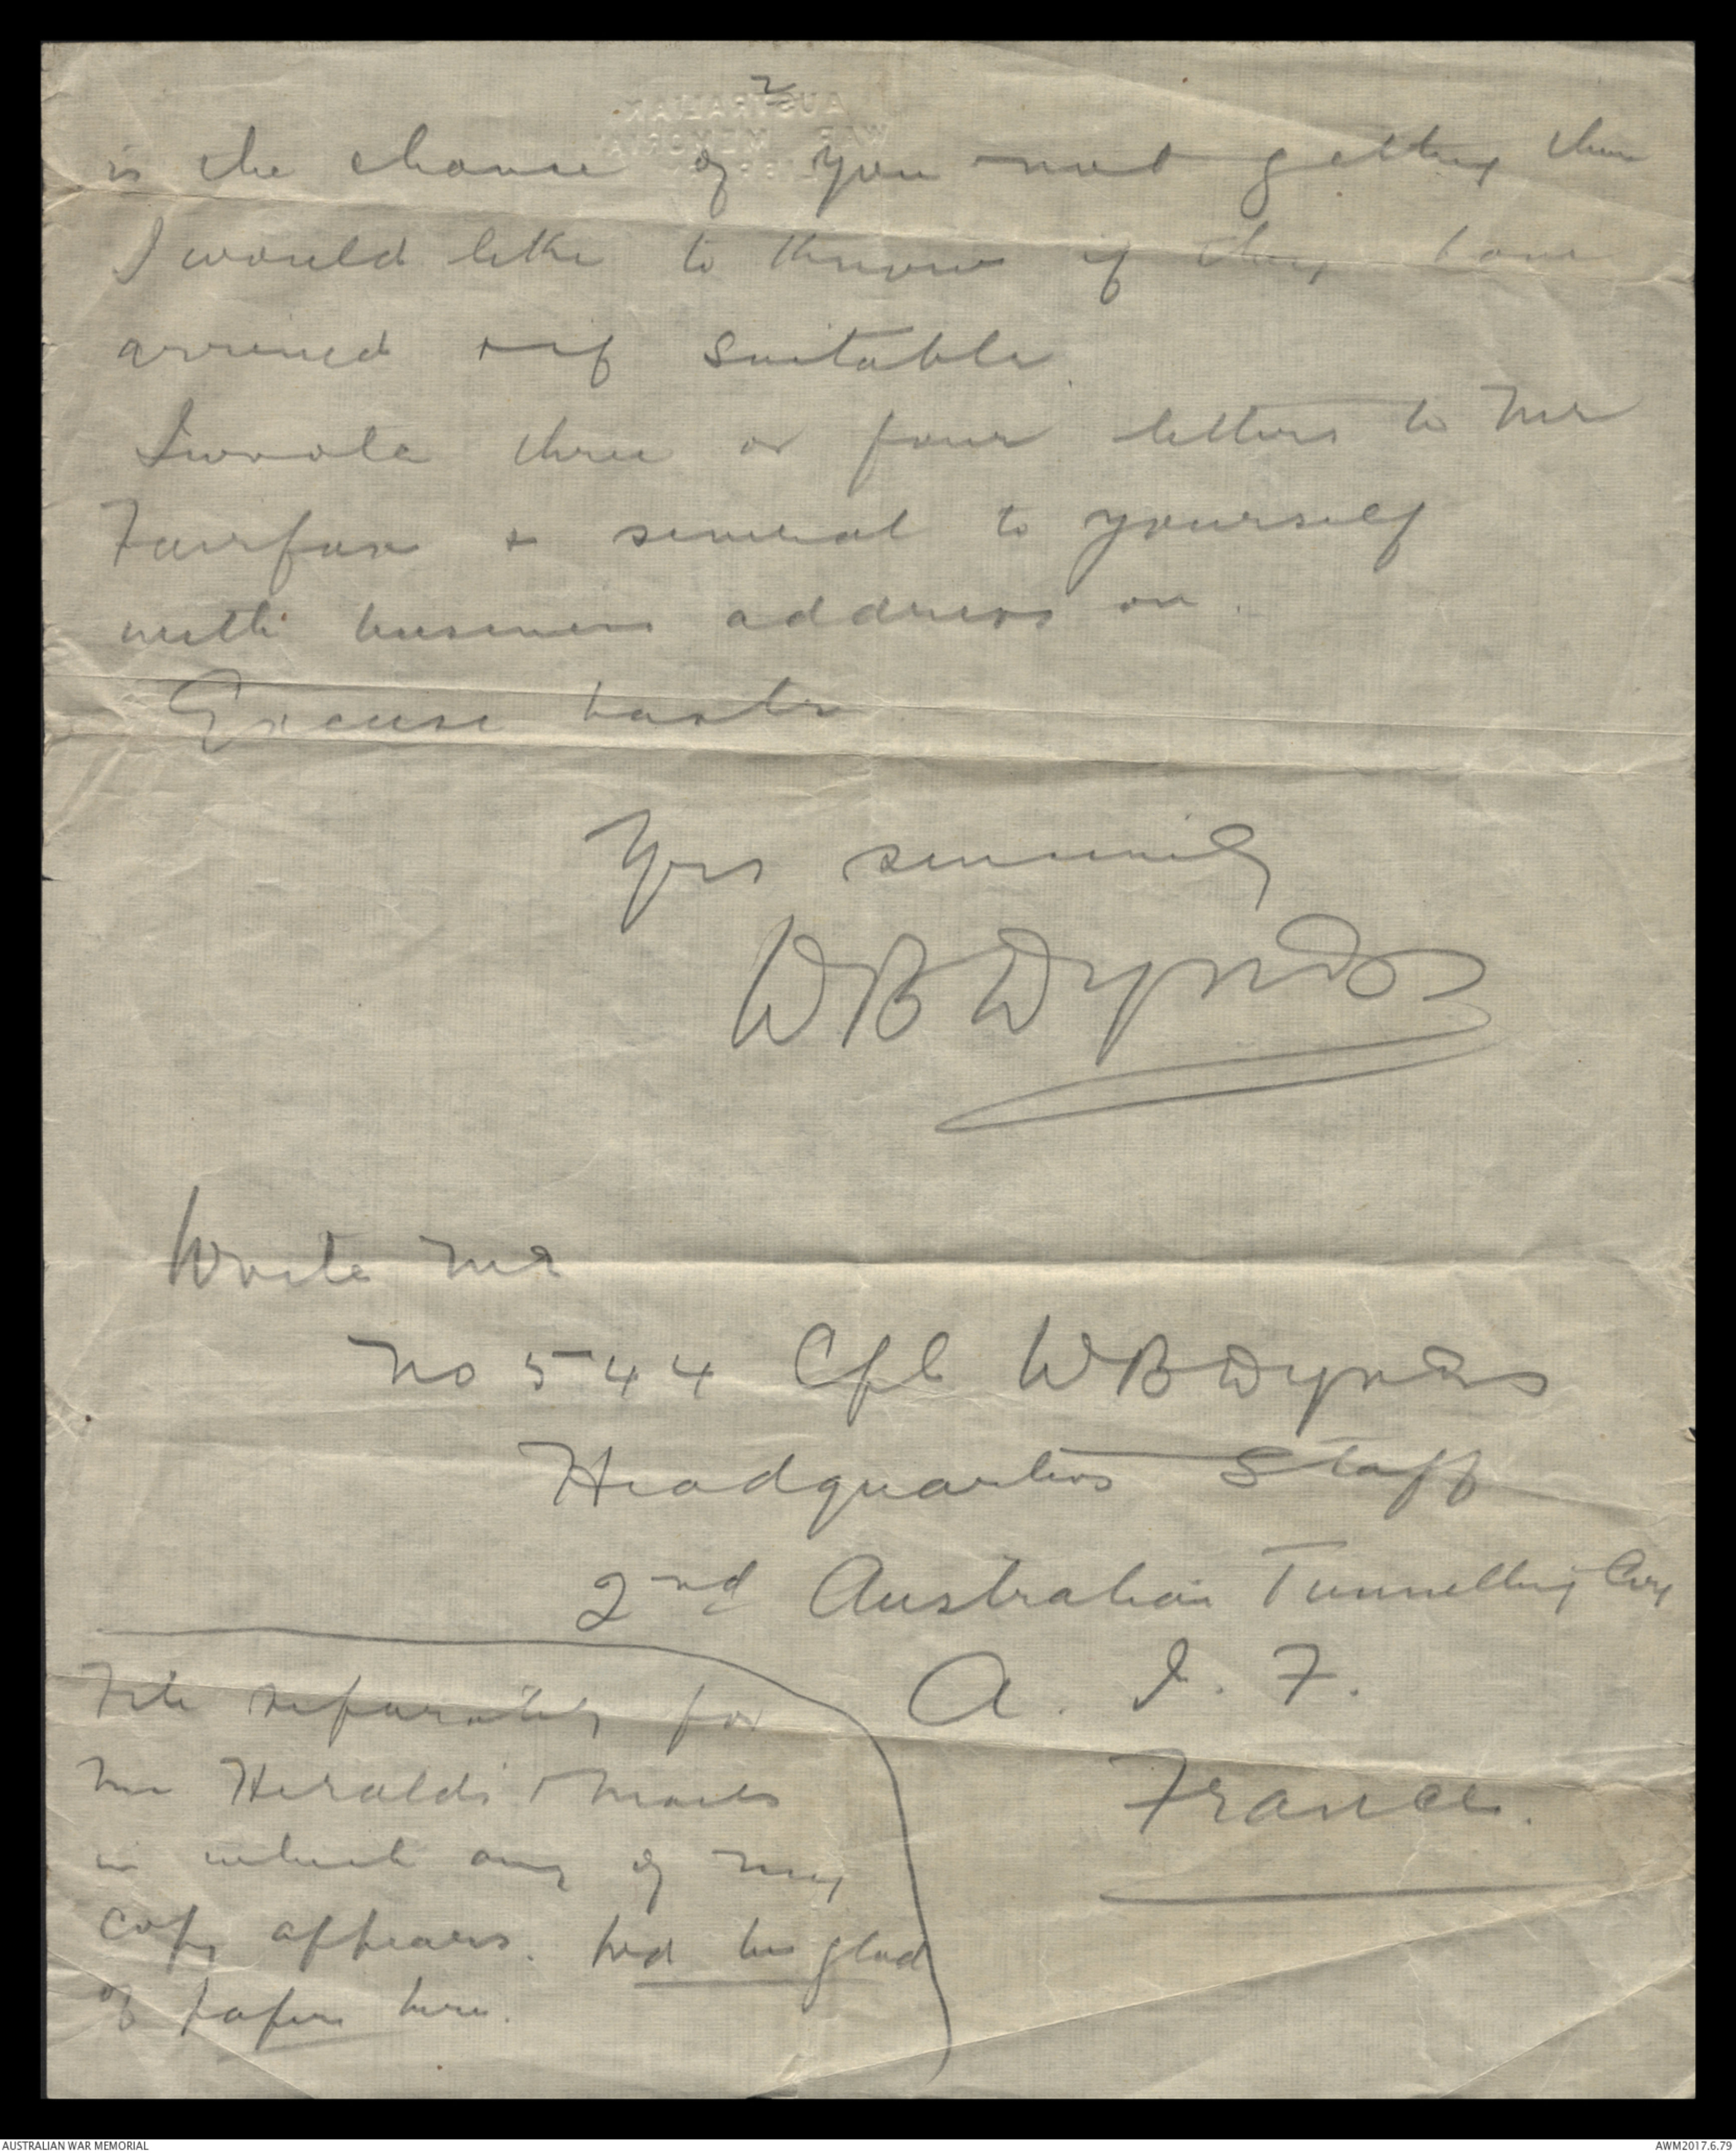 2
is the chance of you not getting them
I would like to know if they have
arrived & if suitable.
I wrote three or four letters to Mr
Fairfax & several to yourself
with business address on.
Excuse haste
Yrs sincerely
W B Wynds
Write me
No 544 Cpl W B Wynds
Headquarters Staff
2nd Australian Tunnelling Coy
A. I. F.
France.
File separately for
me Heralds & Mails
in which any of my
copy appears. Wd be glad
of papers here.
AUSTRALIAN
WAR MEMORIAL
AUSTRALIAN WAR MEMORIAL
AWM2017.6.79